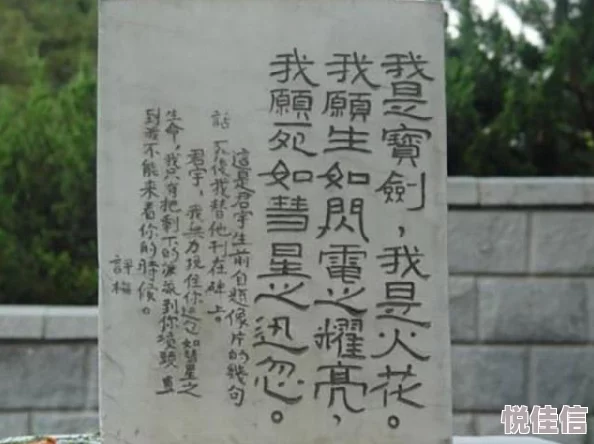 我是寶劍，我是火花。
我願生如閃電之耀亮，
我願死如彗星之迅忽。
這是君宇生前自題像片的幾句
話，死後我替他刊在碑上。
君宇，我無力挽住你迅忽如彗星之
生命，我只有把剩下的淚流到你墳頭，直
到我不能來看你的時候。
評梅
悦佳信